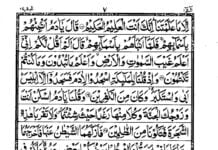 ٧
اِلَّا مَا عَلَّمْتَنَا اِنَّكَ اَنْتَ الْعَلِيْمُ الْحَكِيْمُ قَالَ يٰۤاٰدَمُ اَنْۢبِئْهُمْ
بِاَسْمَآئِهِمْ فَلَمَّاۤ اَنْۢبَاَهُمْ بِاَسْمَآئِهِمْ قَالَ اَلَمْ اَقُلْ لَّكُمْ اِنِّيْۤ
اَعْلَمُ غَيْبَ السَّمٰوٰتِ وَالْاَرْضِ وَاَعْلَمُ مَا تُبْدُوْنَ وَمَا كُنْتُمْ
تَكْتُمُوْنَ وَاِذْ قُلْنَا لِلْمَلٰٓئِكَةِ اسْجُدُوْا لِاٰدَمَ فَسَجَدُوْۤا اِلَّاۤ اِبْلِيْسَ
اَبٰى وَاسْتَكْبَرَ وَكَانَ مِنَ الْكٰفِرِيْنَ وَقُلْنَا يٰۤاٰدَمُ اسْكُنْ اَنْتَ
وَزَوْجُكَ الْجَنَّةَ وَكُلَا مِنْهَا رَغَدًا حَيْثُ شِئْتُمَا وَلَا تَقْرَبَا هٰذِهِ
الشَّجَرَةَ فَتَكُوْنَا مِنَ الظّٰلِمِيْنَ فَاَزَلَّهُمَا الشَّيْطٰنُ عَنْهَا فَاَخْرَجَهُمَا